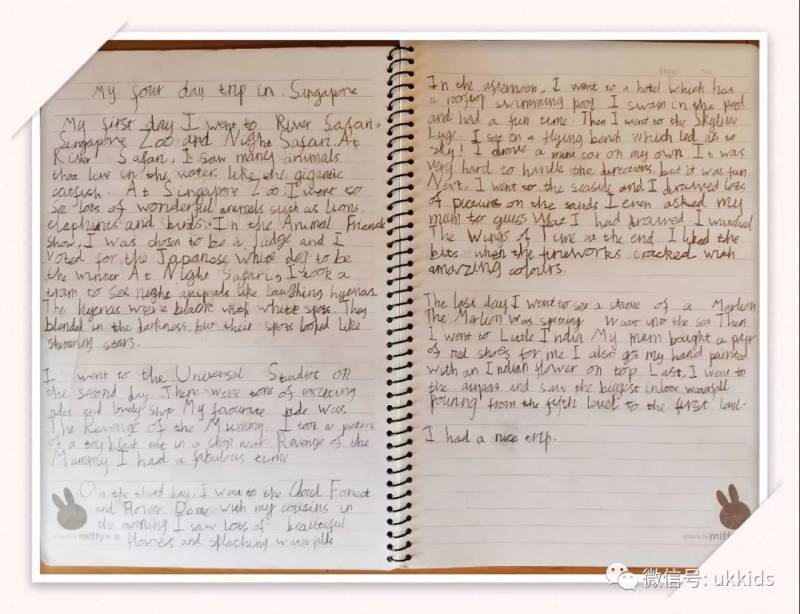 My four day trip in Singapore
My first day I went to River Safari,
Singapore Zoo and Night Safari. At
River Safari, I saw many animals
that live in the water like the gigantic
catfish. At Singapore Zoo, I went to
see lots of wonderful animals such as lions
elephants and birds. In the Animal Friends
Show, I was chosen to be a judge and I
voted for the Japanese white dog to be
the winner At Night Safari, I took a
tram to see night animals like laughing hyenas.
The hyenas were black with white spots. They
blended in the darkness but their spots looked like
shimmering stars.
I went to the Universal Studios on
the second day There were tons of exciting
rides and lovely shop My favourite ride was
The Revenge of the Mummy. I took a picture
of a toy black cat in a shop near Revenge of the
Mummy I had a fabulous time
On the third day, I went to the Cloud Forest
and Flower Dome with my cousins in
the morning I saw lots of beautiful
flowers and splashing waterfalls
miffy
Date: No.
In the afternoon, I went to a hotel which has
a rooftop swimming pool I swam in the pool
and had a fun time Then I went to the Skyline
Luge. I sat on a flying bench which led us to
sky! I drove a mini car on my own It was
very hard to handle the directions, but it was fun
Next, I went to the seaside and I drawed lots
of pictures on the sands I even asked my
mum to guess what I had drawed I watched
The Wings of Time at the end I liked the
bits when the fireworks cracked with
amazing colours.
The last day I went to see a statue of a Merlion
The Merlion was spitting water into the sea Then
I went to Little India My mum bought a pair
of red shoes for me I also got my hand painted
with an Indian flower on top Last, I went to
the airport and saw the biggest indoor waterfall
pouring from the fifth level to the first level.
I had a nice trip.
miffy
微信号: ukkids